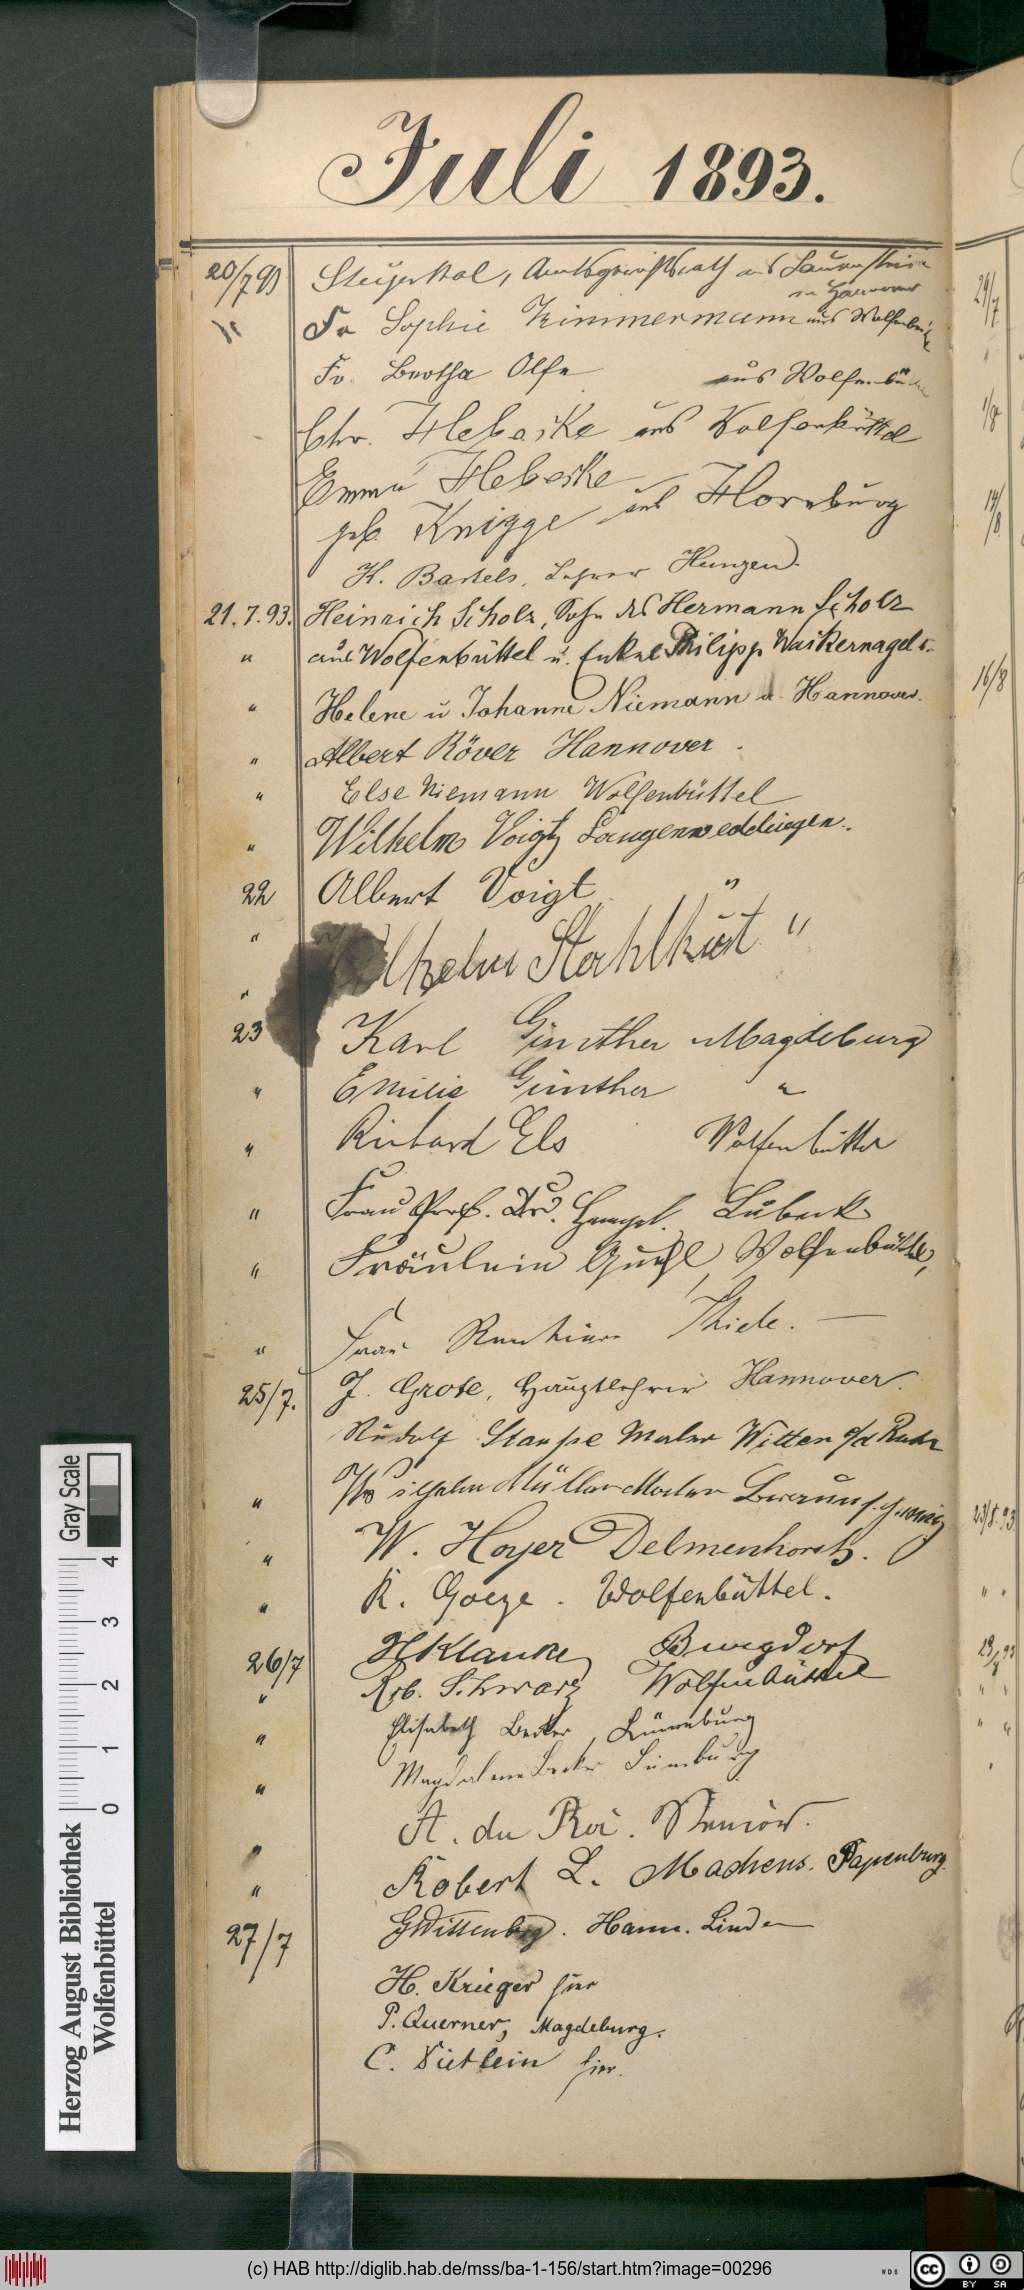 Juli 1893.
20/7 93 Steigerthal, Amtsgerichtsrath aus Lauenstein
in Hannover
" Fr Sophie Zimmermann aus Wolfenbüttel
Fr. Bertha Olfe aus Wolfenbüttel
Chr. Hebecke aus Wolfenbüttel
Emma Hebecke
geb. Knigge aus Hornburg
H. Bartels, Lehrer
21.7.93. Heinrich Scholz, Sohn des Hermann Scholz
" aus Wolfenbüttel u. Enkel Philipp Wackernagels.
" Helene u Johanne Niemann a. Hannover.
" Albert Röver Hannover.
" Else Niemann Wolfenbüttel
" Wilhelm Voigt Langenweddingen.
22 Albert Voigt "
" Wilhelm Stahlkust "
"
23 Karl Günther Magdeburg
" Emilie Günther "
" Richard Els Wolfenbüttel
" Frau Prof. Dr. Lübeck
" Fräulein Wolfenbüttel,
" Frau Rentiere Thiele. —
25/7. J. Grote, Hauptlehrer Hannover.
Rudolf Stampe Maler Witten a/d Ruhr
" Wilhelm Müller Maler Braunschweig
" W. Hoyer Delmenhorst.
" R. Goeze. Wolfenbüttel.
26/7 H Klauke Burgdorf
" Rob. Schwarz Wolfenbüttel
" Elisabeth Becker, Lüneburg
" Magdalene Becker Lüneburg
" A. du Roi.
" Robert L. Machens. Papenburg.
27/7 G Wittenberg. Hann. Linden
H. Krieger hier
P. Querner, Magdeburg.
C. Dietlein hier.
24/7
1/8
14/8
16/8
23/8.93
" "
29/8 93
" "
" "
"
Gray Scale
0 1 2 3 4
Herzog August Bibliothek
Wolfenbüttel
(c) HAB http://diglib.hab.de/mss/ba-1-156/start.htm?image=00296
cc BY SA